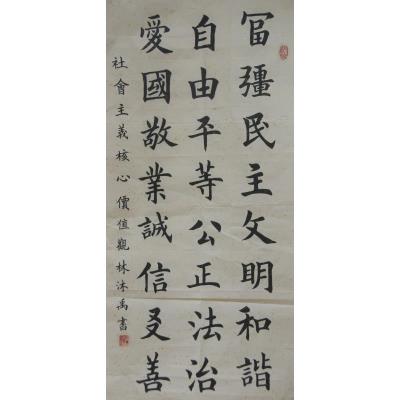 冨疆民主文明和諧
自由平等公正法治
愛國敬業誠信友善
社會主義核心價值觀林沐禹書